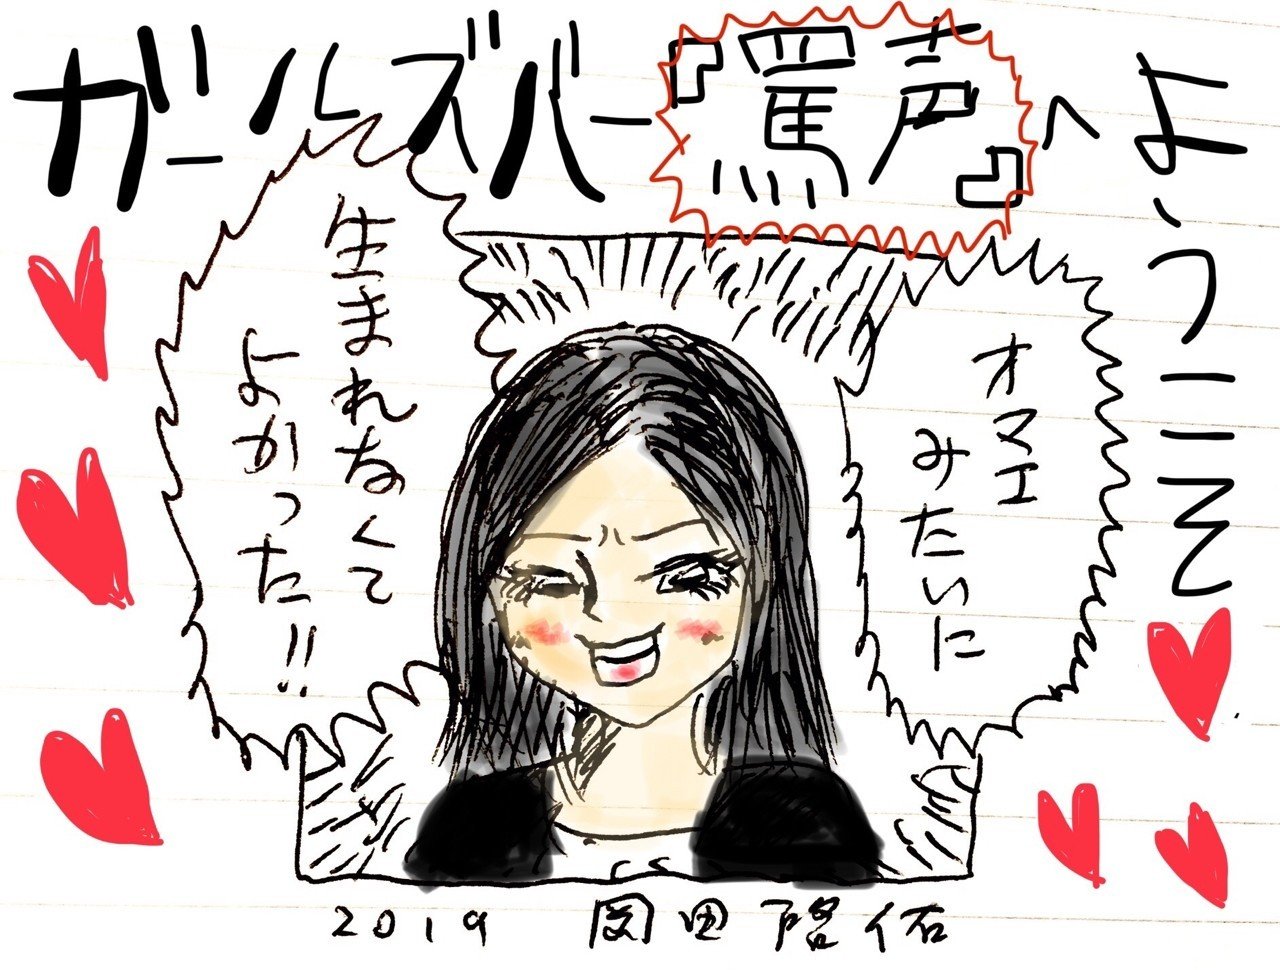 ガールズバー『罵声』へようこそ
オマエ
みたいに
生まれなくて
よかった!!
2019 岡田啓佑